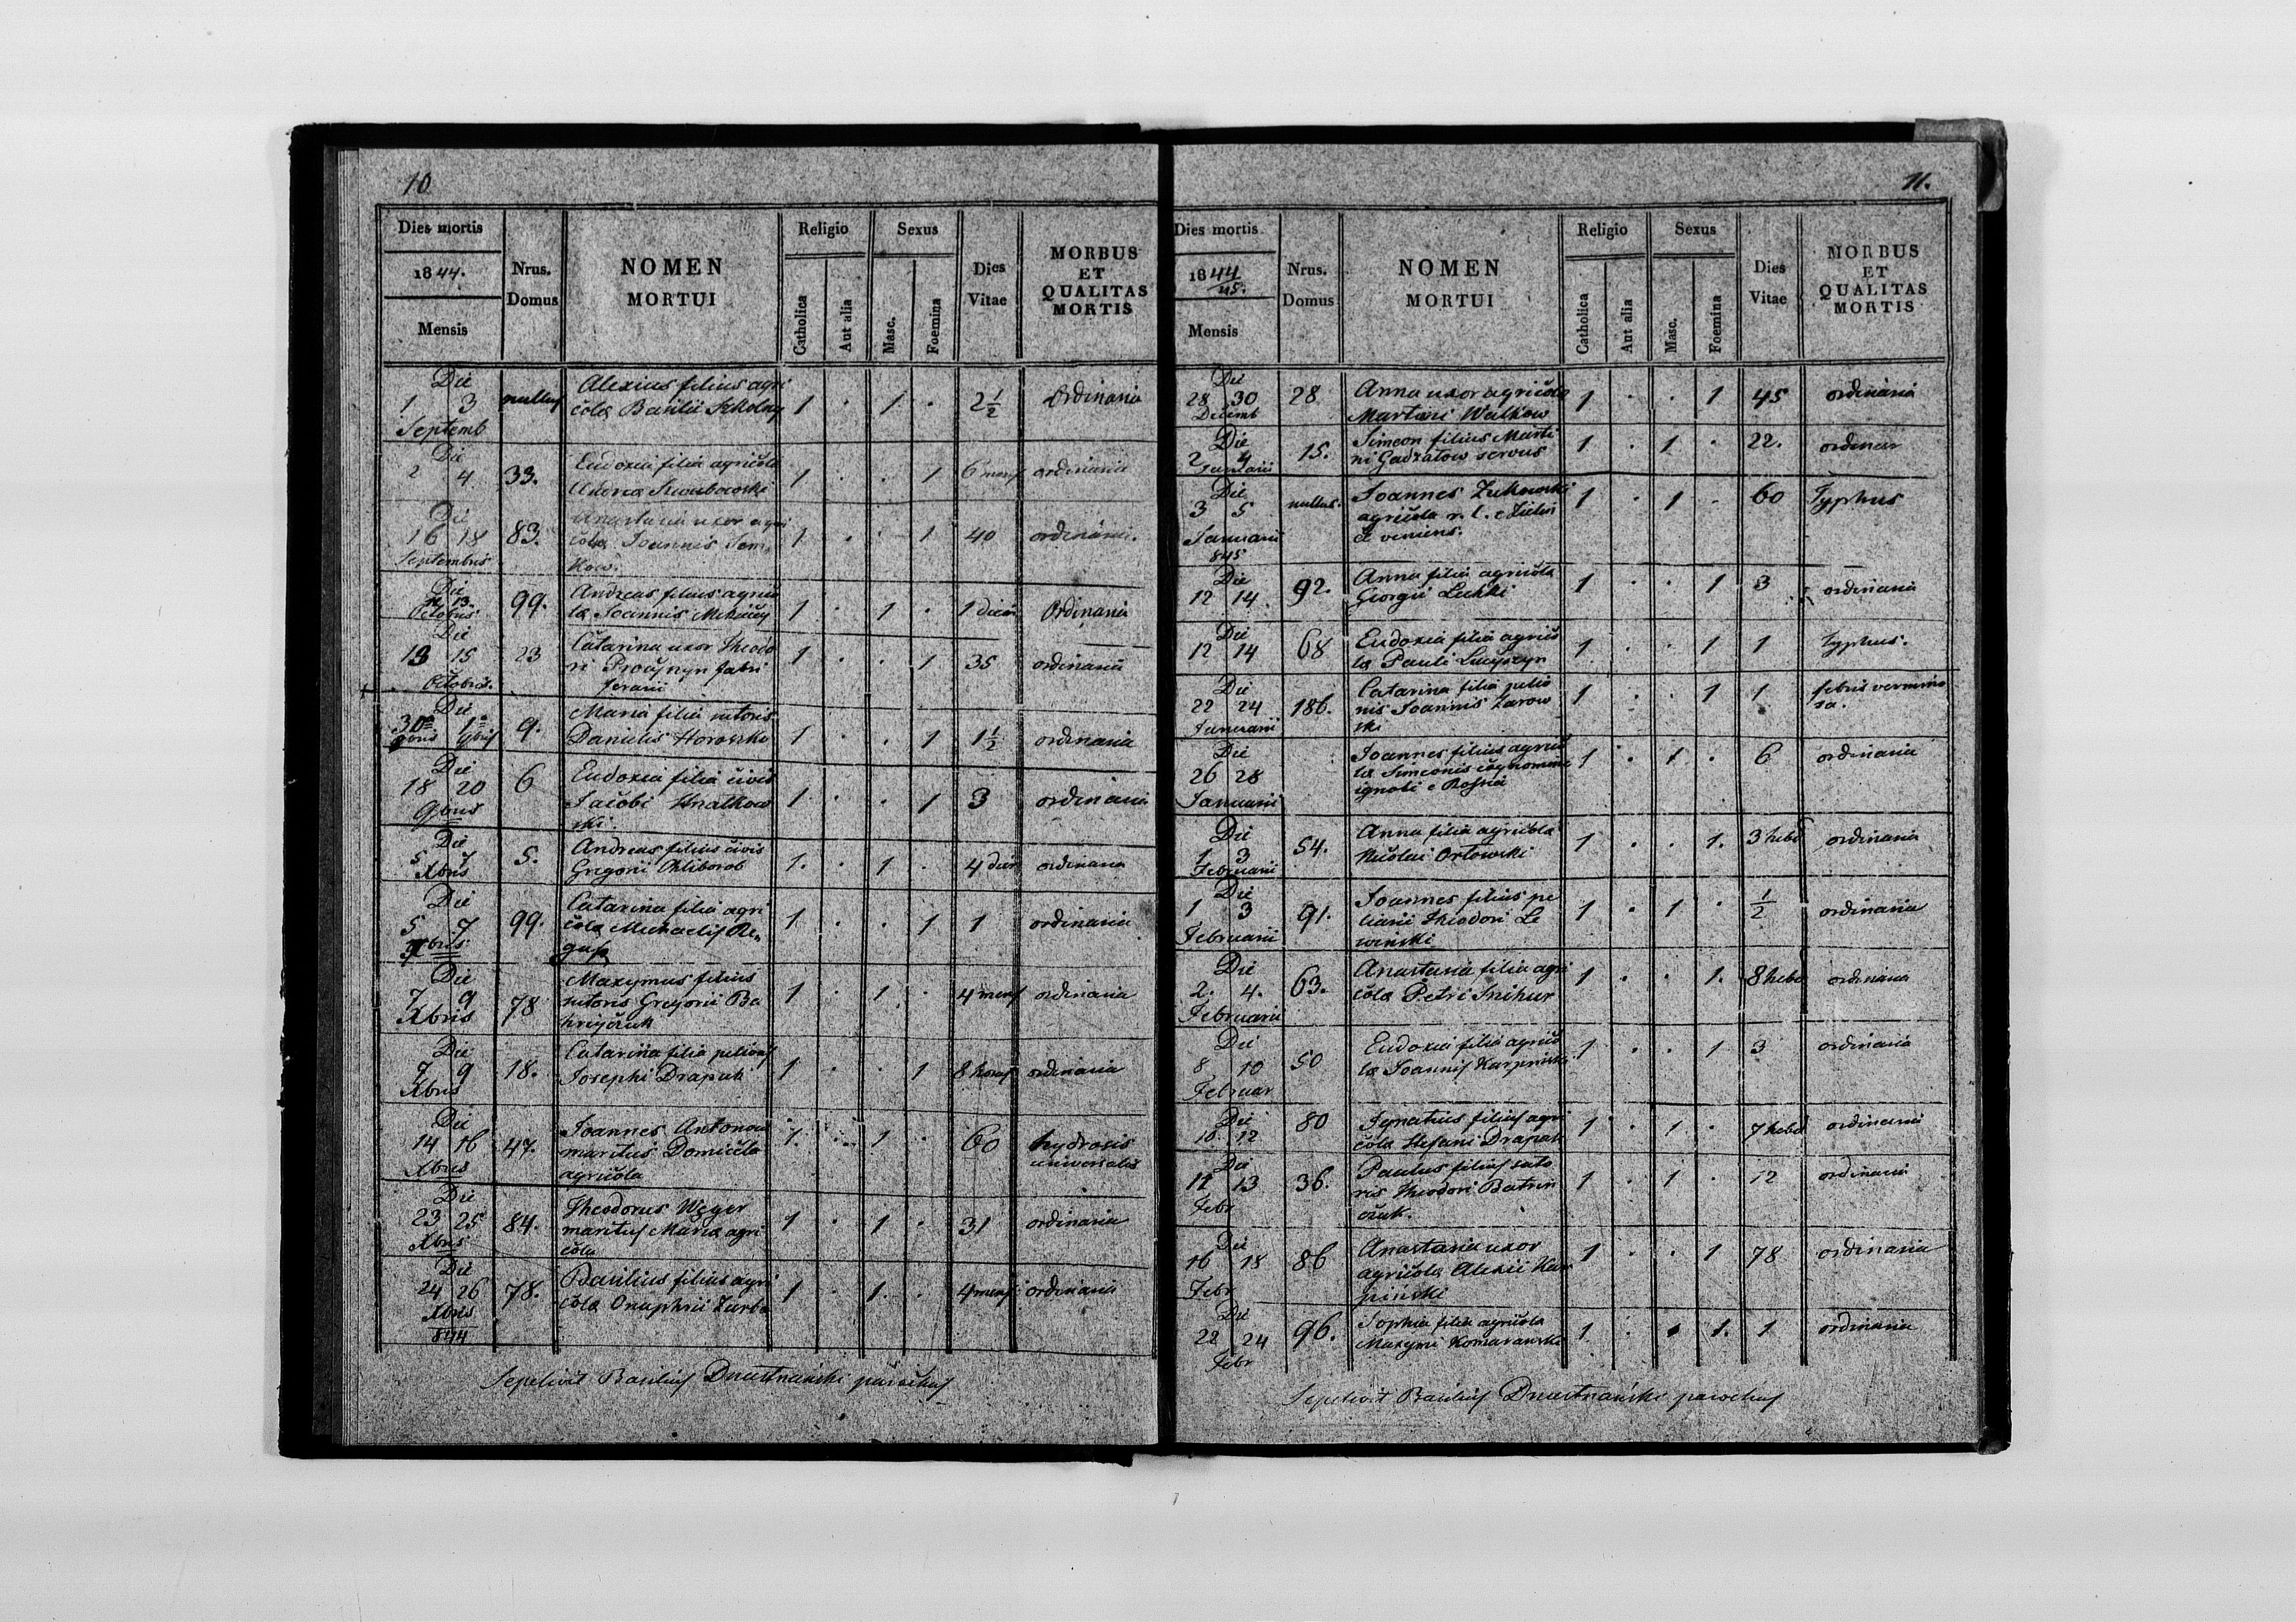 10
Dies mortis
1844.
Mensis
Nrus.
Domus
NOMEN
MORTUI
Religio
Catholica
Aut alia
Sexus
Masc.
Foemina
Dies
Vitae
MORBUS
ET
QUALITAS
MORTIS
Die
1 3
Septemb
nullus
Alexius filius agri
cola Basilii Szkolny
1 . 1 . 2 1/2 Ordinaria
Die
2 4
33.
Eudoxia filia agricola
1 . . 1 6 mens ordinaria
Die
16 18
Septembris
83.
Anastasia uxor agri
cola Joannis Sem
kow.
1 . . 1 40 ordinaria.
Die
11 13.
Octobris
99.
Andreas filius agrico
la Joannis
1 . 1 . 1 diem Ordinaria
Die
13 15
Octobris.
23
Catarina uxor Theodo
ri fabri
ferarii
1 . . 1 35 ordinaria
Die
30a 1a
9.
Maria filia sutoris
Danielis Horoszko
1 . . 1 1 1/2 ordinaria
Die
18 20
9bris
6
Eudoxia filia civis
Jacobi Hnatkow
ski.
1 . . 1 3 ordinaria
Die
5 7
Xbris
5.
Andreas filius civis
Gregorii Chliborob
1. . 1 . 4 dies ordinaria
Die
5 7
Xbris
99.
Catarina filia agri
cola Michaelis
1 . . 1 1 ordinaria
Die
7 9
Xbris
78
Maxymus filius
sutoris Gregorii Ba
1 . 1 . 4 mens ordinaria
Die
7 9
Xbris
18.
Catarina filia pelionis
Josephi Drapak
1 . . 1 8 horas ordinaria
Die
14 16
Xbris
47.
Joannes Antonow
maritus Domicela
agricola
1 . 1 . 60 hydrosis
universalis
Die
23 25
Xbris
84.
Theodorus Weger
maritus Maria agri
cola
1 . 1 . 31 ordinaria
Die
24 26
Xbris
844
78.
Basilius filius agri
cola Onuphrii Zurba
1 . 1. . 4 mens ordinaria
Sepelivit Basilius Dnestrianski parochus
11.
Dies mortis
1844/45.
Mensis
Nrus.
Domus
NOMEN
MORTUI
Religio
Catholica
Aut alia
Sexus
Masc.
Foemina
Dies
Vitae
MORBUS
ET
QUALITAS
MORTIS
Die
28 30
Decemb
28
Anna uxor agricola
Martini Walkow
1 . . 1 45 ordinaria
Die
2 4
Januarii
15.
Simeon filius Marti
ni Gadzatow servus
1 . 1 . 22. ordinar
Die
3 5
Januarii
845
nullus.
Joannes Zukowski
agricola r. l. e
veniens.
1 . 1 . 60 Typhus
Die
12 14
92.
Anna filia agricola
Giorgii Lecki
1 . . 1 3 ordinaria
Die
12 14
68
Eudoxia filia agrico
la Pauli
1 . . 1 1 typhus.
Die
22 24
Januarii
186.
Catarina filia pelio
nis Joannis Zarow
ski
1 . . 1 1 febris vermino
sa.
Die
26 28
Januarii
Joannes filius agrico
la Simeonis cognomine
ignoti e Rosnia
1 . 1 . 6 ordinaria
Die
1 3
Februarii
54.
Anna filia agricola
Nicolai Orlowski
1 . . 1. 3 hebd ordinaria
Die
1 3
Februarii
91.
Joannes filius pe
lianii Theodori Le
winski
1 . 1 . 1/2 ordinaria
Die
2. 4.
Februarii
63.
Anastasia filia agri
cola Petri Snihur
1 . . 1. 8 hebd ordinaria
Die
8 10
Februar
50
Eudoxia filia agrico
la Joannis Karpinski
1 . . 1 3 ordinaria
Die
10 12
80
Ignatius filius agri
cola Stefani Drapak
1 . 1 . 7 hebd ordinaria
Die
11 13
Febr
36.
Paulus filius suto
ris Theodori Batrin
czuk.
1 . 1 . 12 ordinaria
Die
16 18
Febr
86
Anastasia uxor
agricola Alexii Kar
pinski
1 . . 1 78 ordinaria
Die
22 24
Febr
96.
Sophia filia agricola
Maxymi Komaranski
1 . . 1. 1 ordinaria
Sepelivit Basilius Dnestrianski parochus